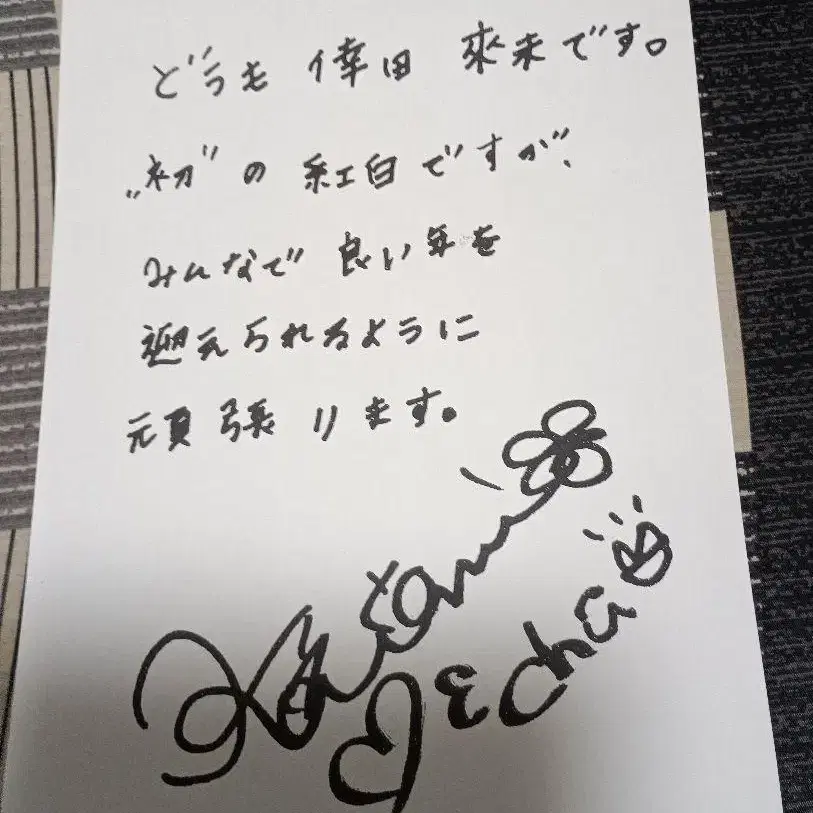 どうも 倖田 來未です。
"初"の 紅白ですが、
みんなで 良い年を
迎えられるように
頑張ります。